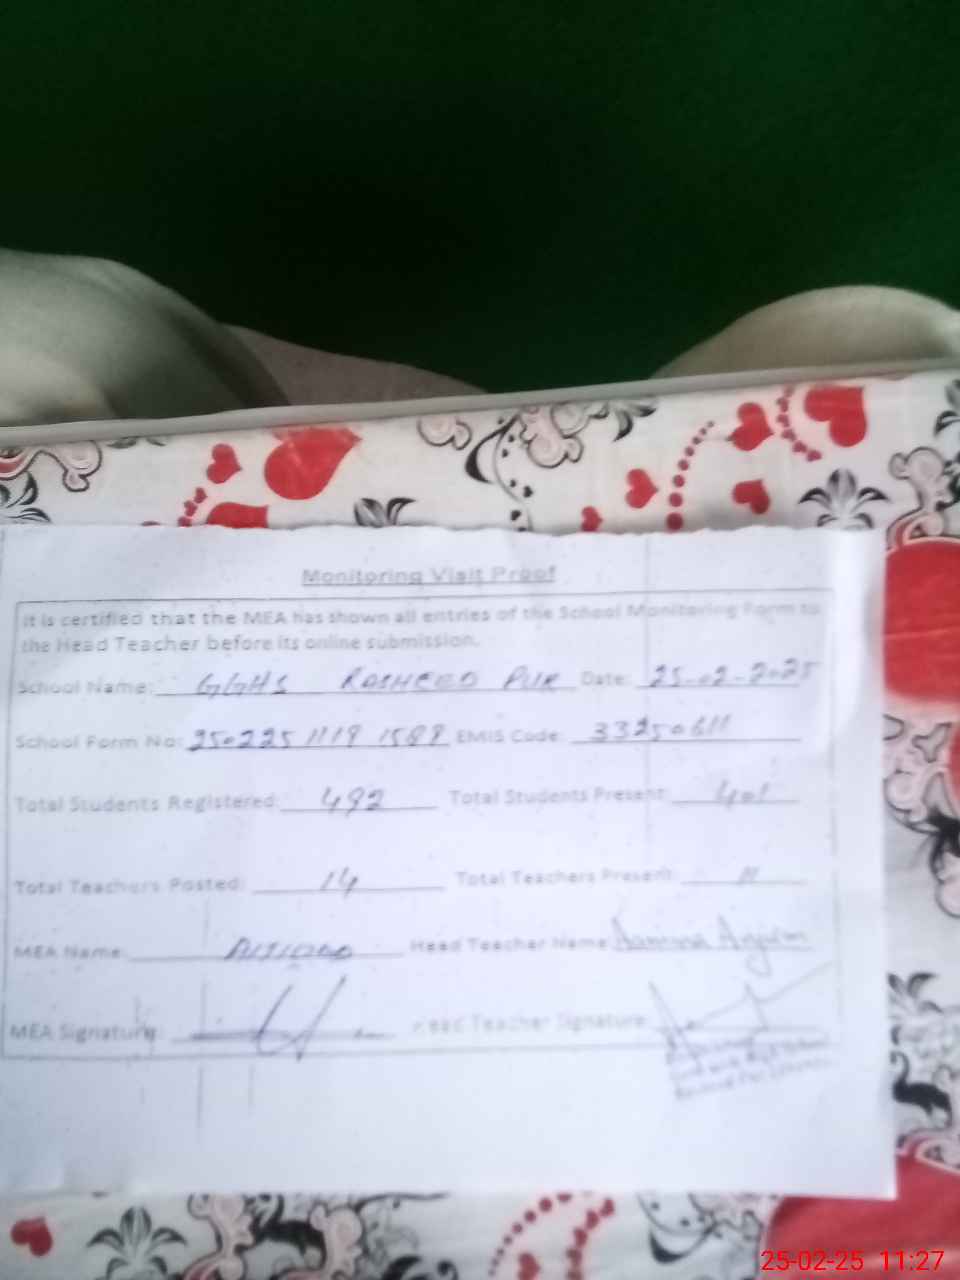 Monitoring Visit Proof
It is certified that the MEA has shown all entries of the School Monitoring Form to
the Head Teacher before its online submission.
School Name: GGHS RASHEED PUR Date: 25-02-2025
School Form No: 250225 1119 1588 EMIS Code: 33250611
Total Students Registered: 492 Total Students Present: 401
Total Teachers Posted: 14 Total Teachers Present: 11
MEA Name: Head Teacher Name: Anjum
MEA Signature: Head Teacher Signature:
25-02-25 11:27